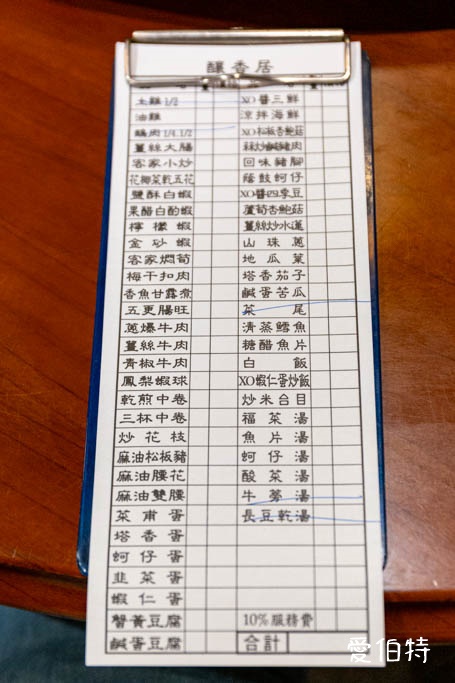 釀香居
土雞 1/2
油雞
鵝肉 1/4.1/2
薑絲大腸
客家小炒
花椰菜乾五花
鹽酥白蝦
果醋白酌蝦
檸檬蝦
金砂蝦
客家燜筍
梅干扣肉
香魚甘露煮
五更腸旺
蔥爆牛肉
薑絲牛肉
青椒牛肉
鳳梨蝦球
乾煎中卷
三杯中卷
炒花枝
麻油松板豬
麻油腰花
麻油雙腰
菜甫蛋
塔香蛋
蚵仔蛋
韭菜蛋
蝦仁蛋
蟹黃豆腐
鹹蛋豆腐
XO醬三鮮
涼拌海鮮
XO松板杏鮑菇
回味豬腳
蔭鼓蚵仔
XO醬四季豆
蘆筍杏鮑菇
薑絲炒水蓮
山珠蔥
地瓜葉
塔香茄子
鹹蛋苦瓜
菜尾
清蒸鱈魚
糖醋魚片
白飯
XO蝦仁蛋炒飯
炒米台目
福菜湯
魚片湯
蚵仔湯
酸菜湯
牛蒡湯
長豆乾湯
10%服務費
合計
愛伯特